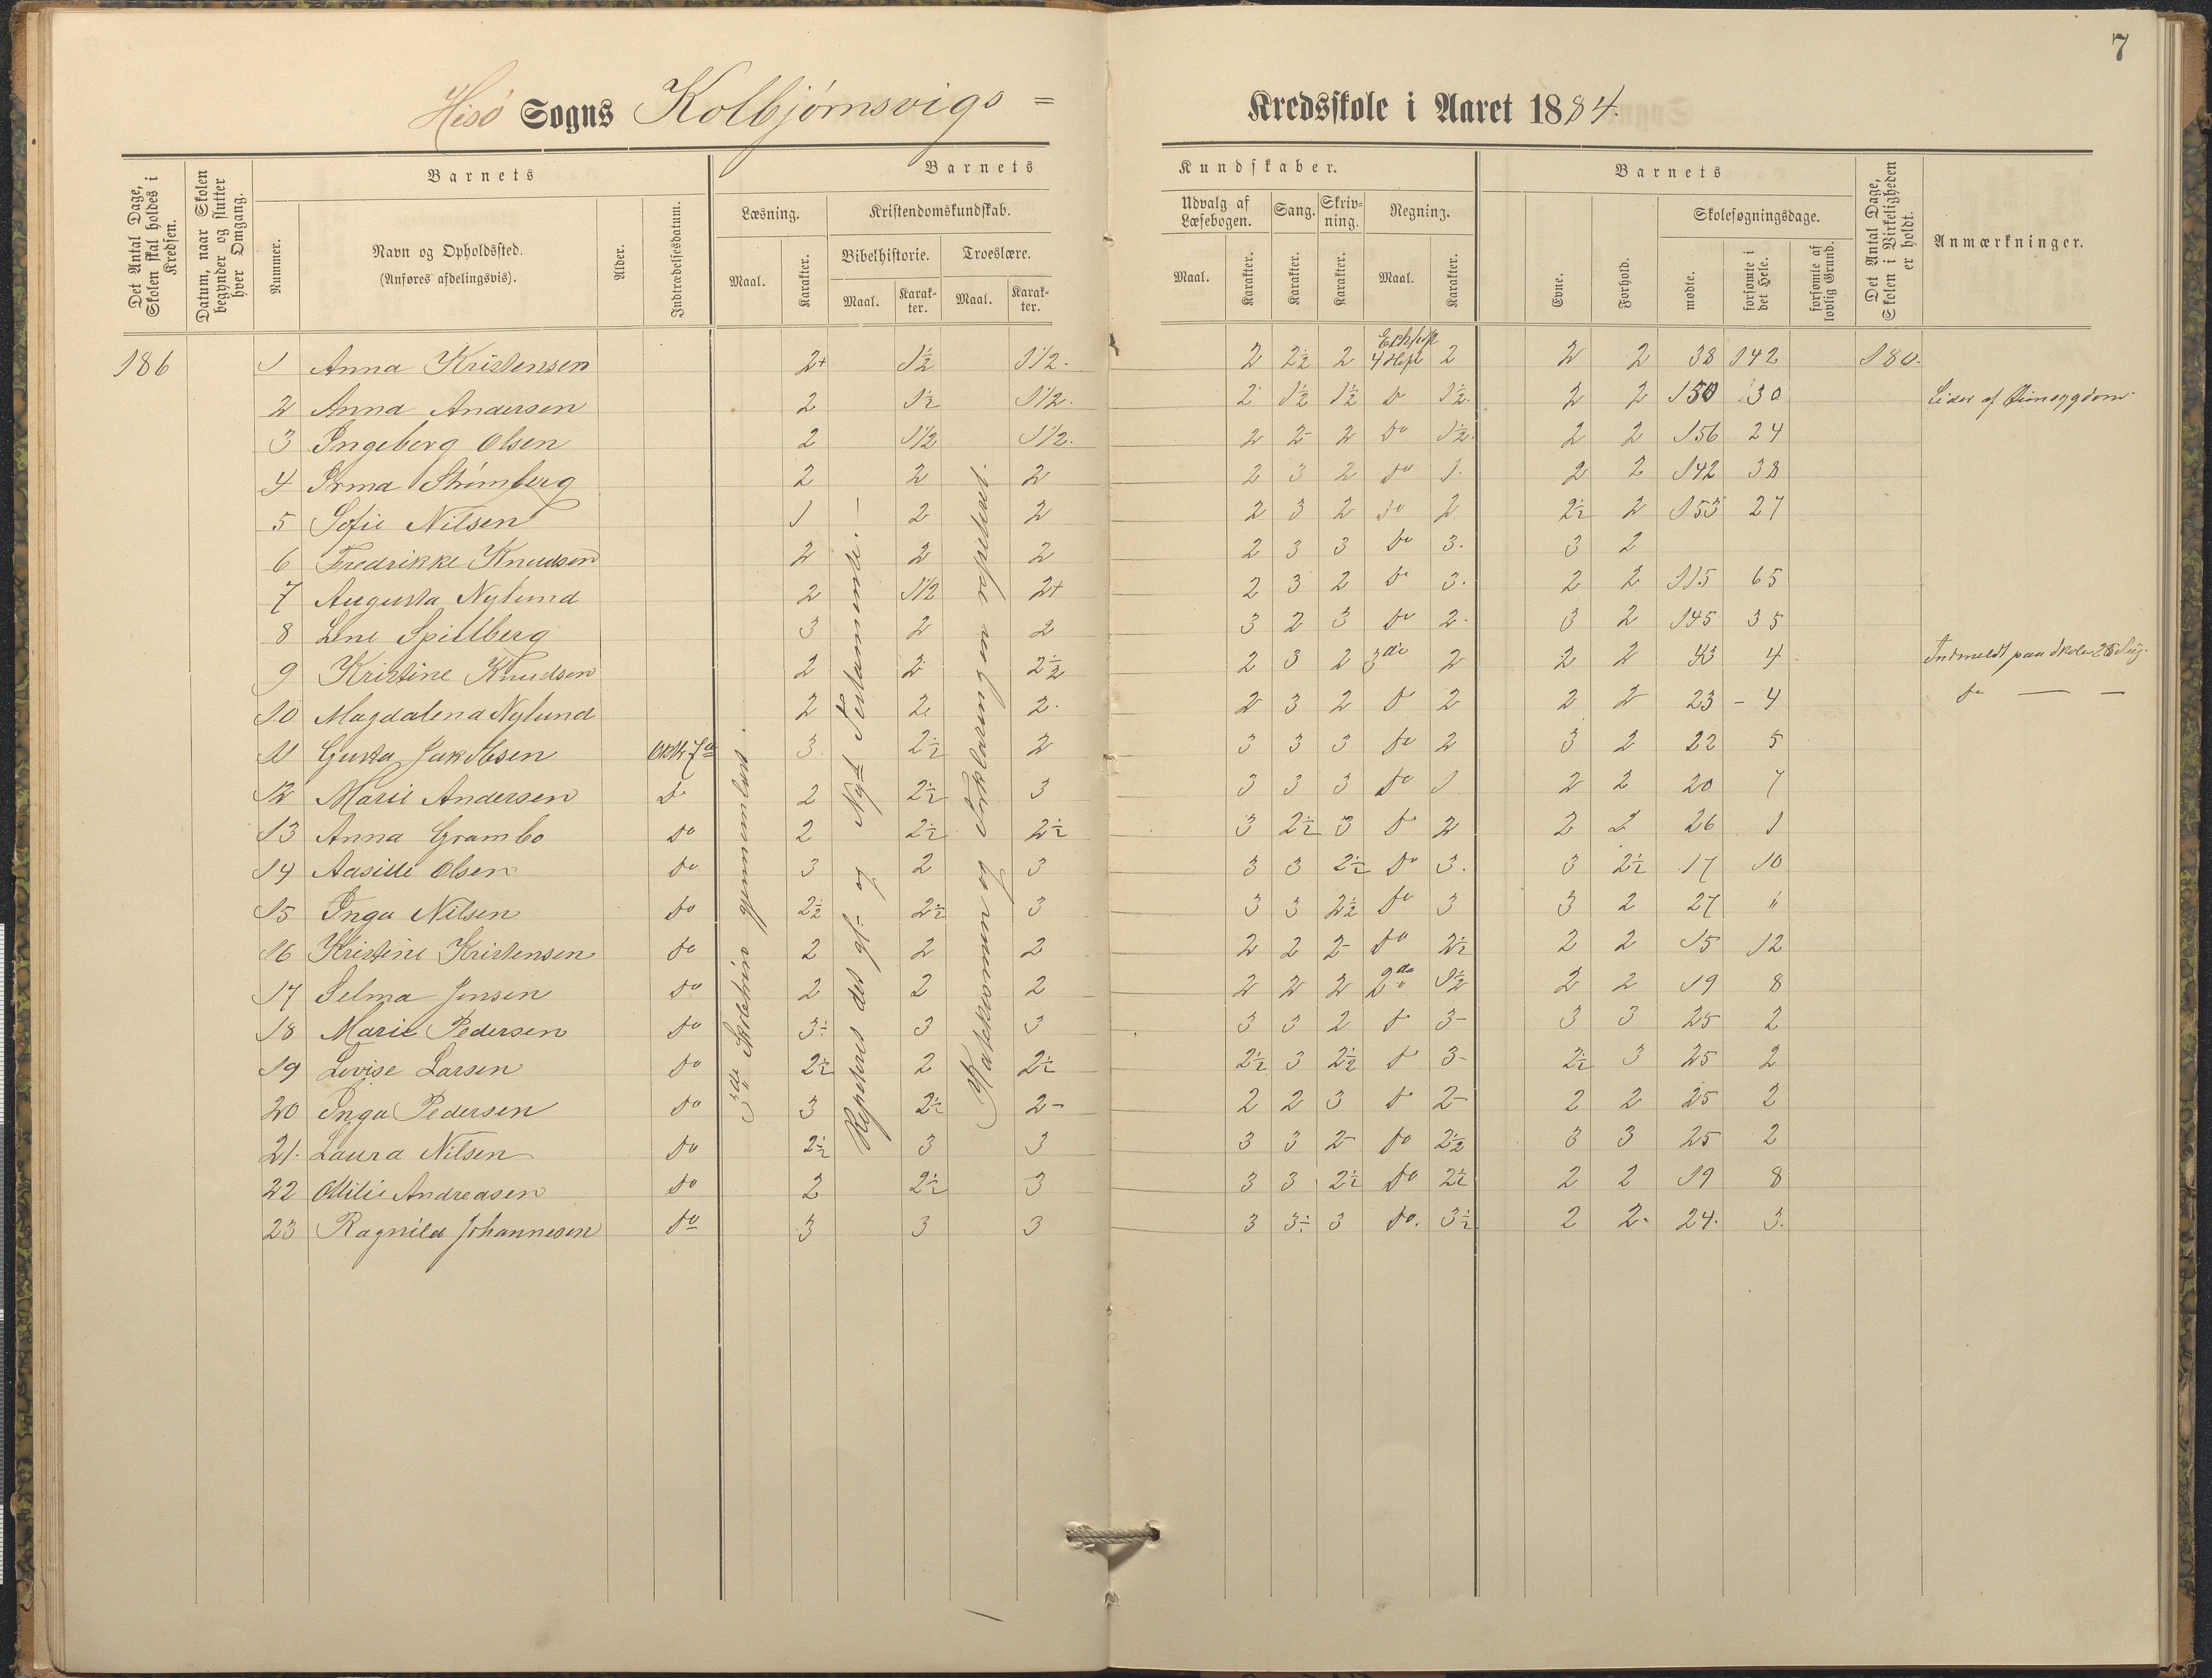 7
Hisö Sogns Kolbjörnsvigs = Kredsskole i Aaret 1884.
Det Antal Dage, Skolen skal holdes i Kredsen.
Datum, naar Skolen begynder og slutter hver Omgang.
Barnets
Nummer.
Navn og Opholdssted.
(Anføres afdelingsvis).
Alder.
Indtrædelsesdatum.
Barnets Kundskaber.
Læsning.
Maal.
Karakter.
Kristendomskundskab.
Bibelhistorie.
Maal.
Karakter.
Troeslære.
Maal.
Karakter.
Udvalg af Læsebogen.
Maal.
Karakter.
Sang.
Karakter.
Skrivning.
Karakter.
Regning.
Maal.
Karakter.
Barnets
Evne.
Forhold.
Skolesøgningsdage.
mødte.
forsømte i det Hele.
forsømte af lovlig Grund.
Det Antal Dage, Skolen i Virkeligheden er holdt.
Anmærkninger.
186 1 Anna Kristensen 2+ 1½ 1½. 2 2½ 2 4 Heft 2 2 2 38 142 180.
2 Anna Andersen 2 1½ 1½. 2 1½ 1½ do 1½. 2 2 150 30 Lider af
3 Ingeborg Olsen 2 1½ 1½. 2 2- 2 do 1½. 2 2 156 24
4 Irma Strömberg 2 2 2 2 3 2 do 1. 2 2 142 38
5 Sofie Nilsen 1 2 2 2 3 2 do 2 2½ 2 153 27
6 Fredrikke Knudsen 2 2 2 2 3 3 do 3. 3 2
7 Augusta Nylund 2 1½ 2+ 2 3 2 do 3. 2 2 115 65
8 Lene Spillberg 3 2 2 3 2 3 do 2- 3 2 145 35
9 Kristine Knudsen 2 2 2½ 2 3 2 3die 2 2 2 43 4 Indmeldt paa Skolen 25 Aug.
10 Magdalena Nylund 2 2 2. 2 3 2 do 2 2 2 23 - 4 do — —
11 Gusta Jakobsen Oktb 7de 3 2½ 2 3 3 3 do 2 3 2 22 5
12 Marie Andersen do 2 2½ 3 3 3 3 do 1 2 2 20 7
13 Anna Grambo do 2 2½ 2½ 3 2½ 3 do 2 2 2 26 1
14 Aasille Olsen do 3 2 3 3 3 2½ do 3. 3 2½ 17 10
15 Inga Nilsen do 2½ 2½ 3 3 3 2½ do 3 3 2 27 "
16 Kristine Kristensen do 2 2 2 2 2 2- do 2½ 2 2 15 12
17 Selma Jensen do 2 2 2 2 2 2 2den 1½ 2 2 19 8
18 Marie Pedersen do 3÷ 3 3 3 3 2 do 3- 3 3 25 2
19 Lovise Larsen do 2½ 2 2½ 2½ 3 2½ do 3- 2½ 3 25 2
20 Inga Pedersen do 3 2½ 2- 2 2 3 do 2- 2 2 25 2
21. Laura Nilsen do 2½ 3 3 3 3 2- do 2½ 3 3 25 2
22 Ottilie Andreasen do 2 2½ 3 3 3 2½ do 2½ 2 2 19 8
23 Ragnild Johannesen do 3 3 3 3 3÷ 3 do. 3½ 2 2. 24. 3.
3die Skoletrin gjennemlæst.
Repeteret det gl. og Nyt Testamente. —
Katekismen og Forklaringen repeteret.